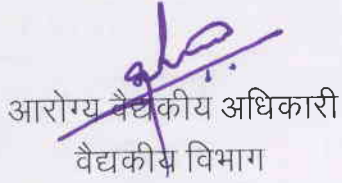 आरोग्य वैद्यकीय अधिकारी
वैद्यकीय विभाग